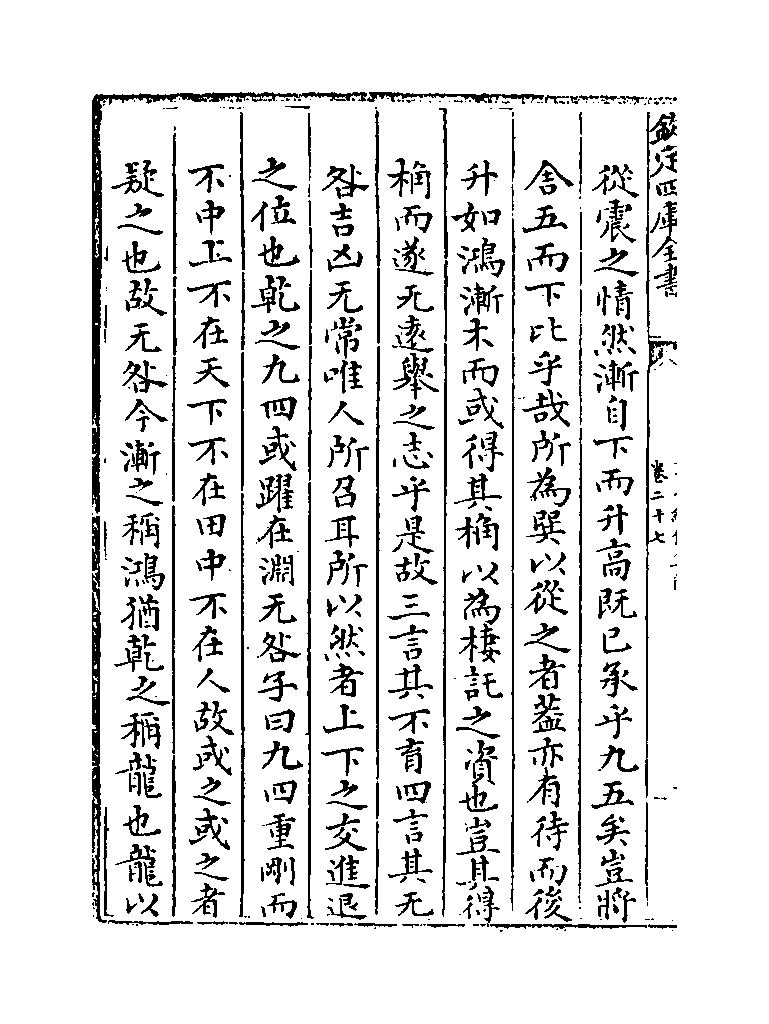 欽定四庫全書
卷二十七
從震之情然漸自下而升高既已承乎九五矣豈將
舍五而下比乎哉所為巽以從之者葢亦有待而後
升如鴻漸木而或得其桷以為棲託之資也豈其得
桷而遂无遠舉之志乎是故三言其不育四言其无
咎吉凶无常唯人所召耳所以然者上下之交進退
之位也乾之九四或躍在淵无咎子曰九四重剛而
不中上不在天下不在田中不在人故或之或之者
疑之也故无咎今漸之稱鴻猶乾之稱龍也龍以